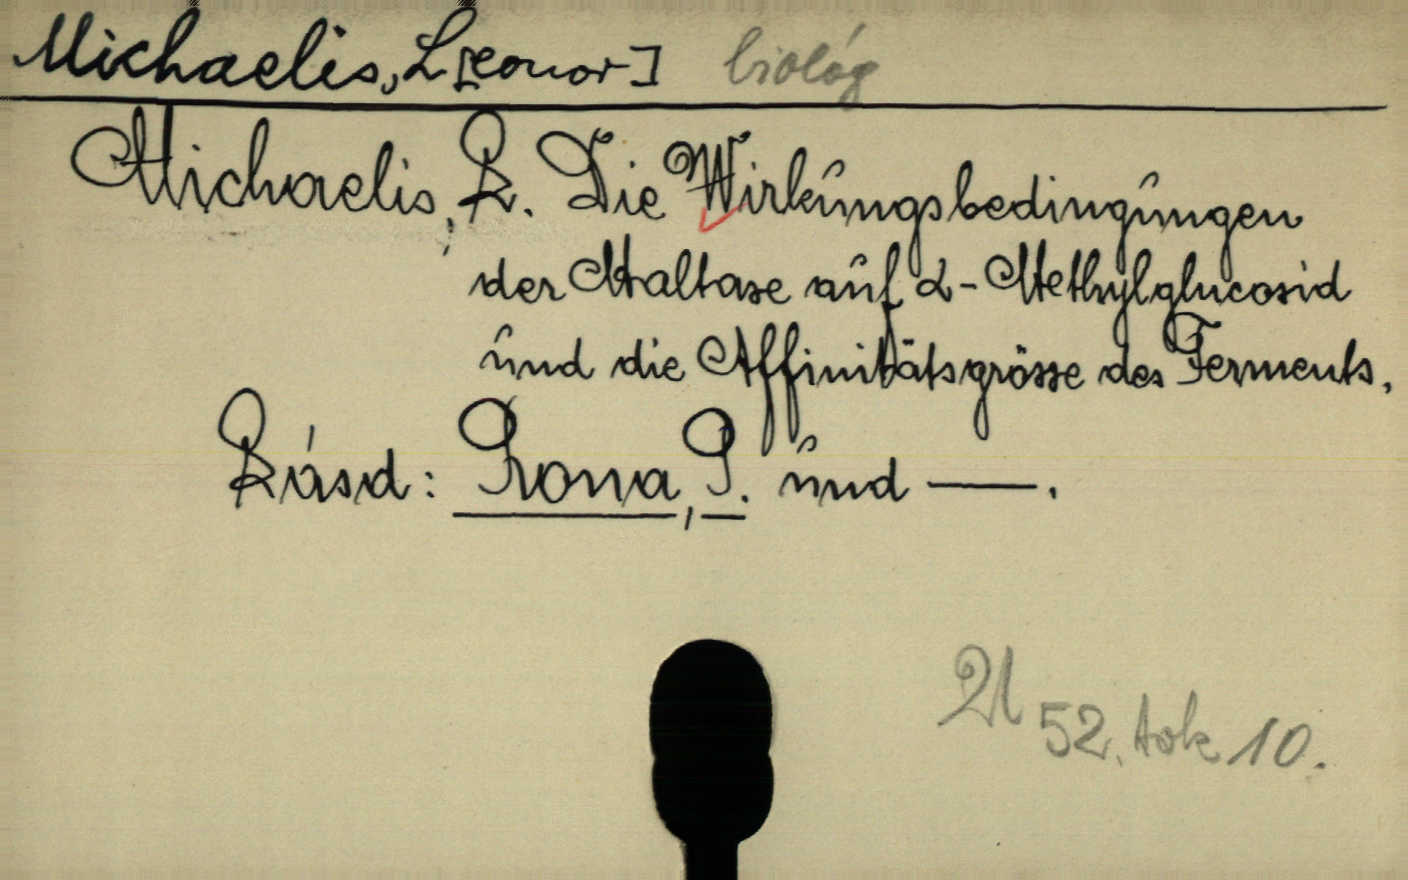 Michaelis, L[eonor] biológ
Michaelis, L. Die Wirkungsbedingungen
der Maltase auf α-Methylglucosid
und die Affinitätsgrösse des Ferments.
Lásd: Rona, P. und —.
52. tok 10.